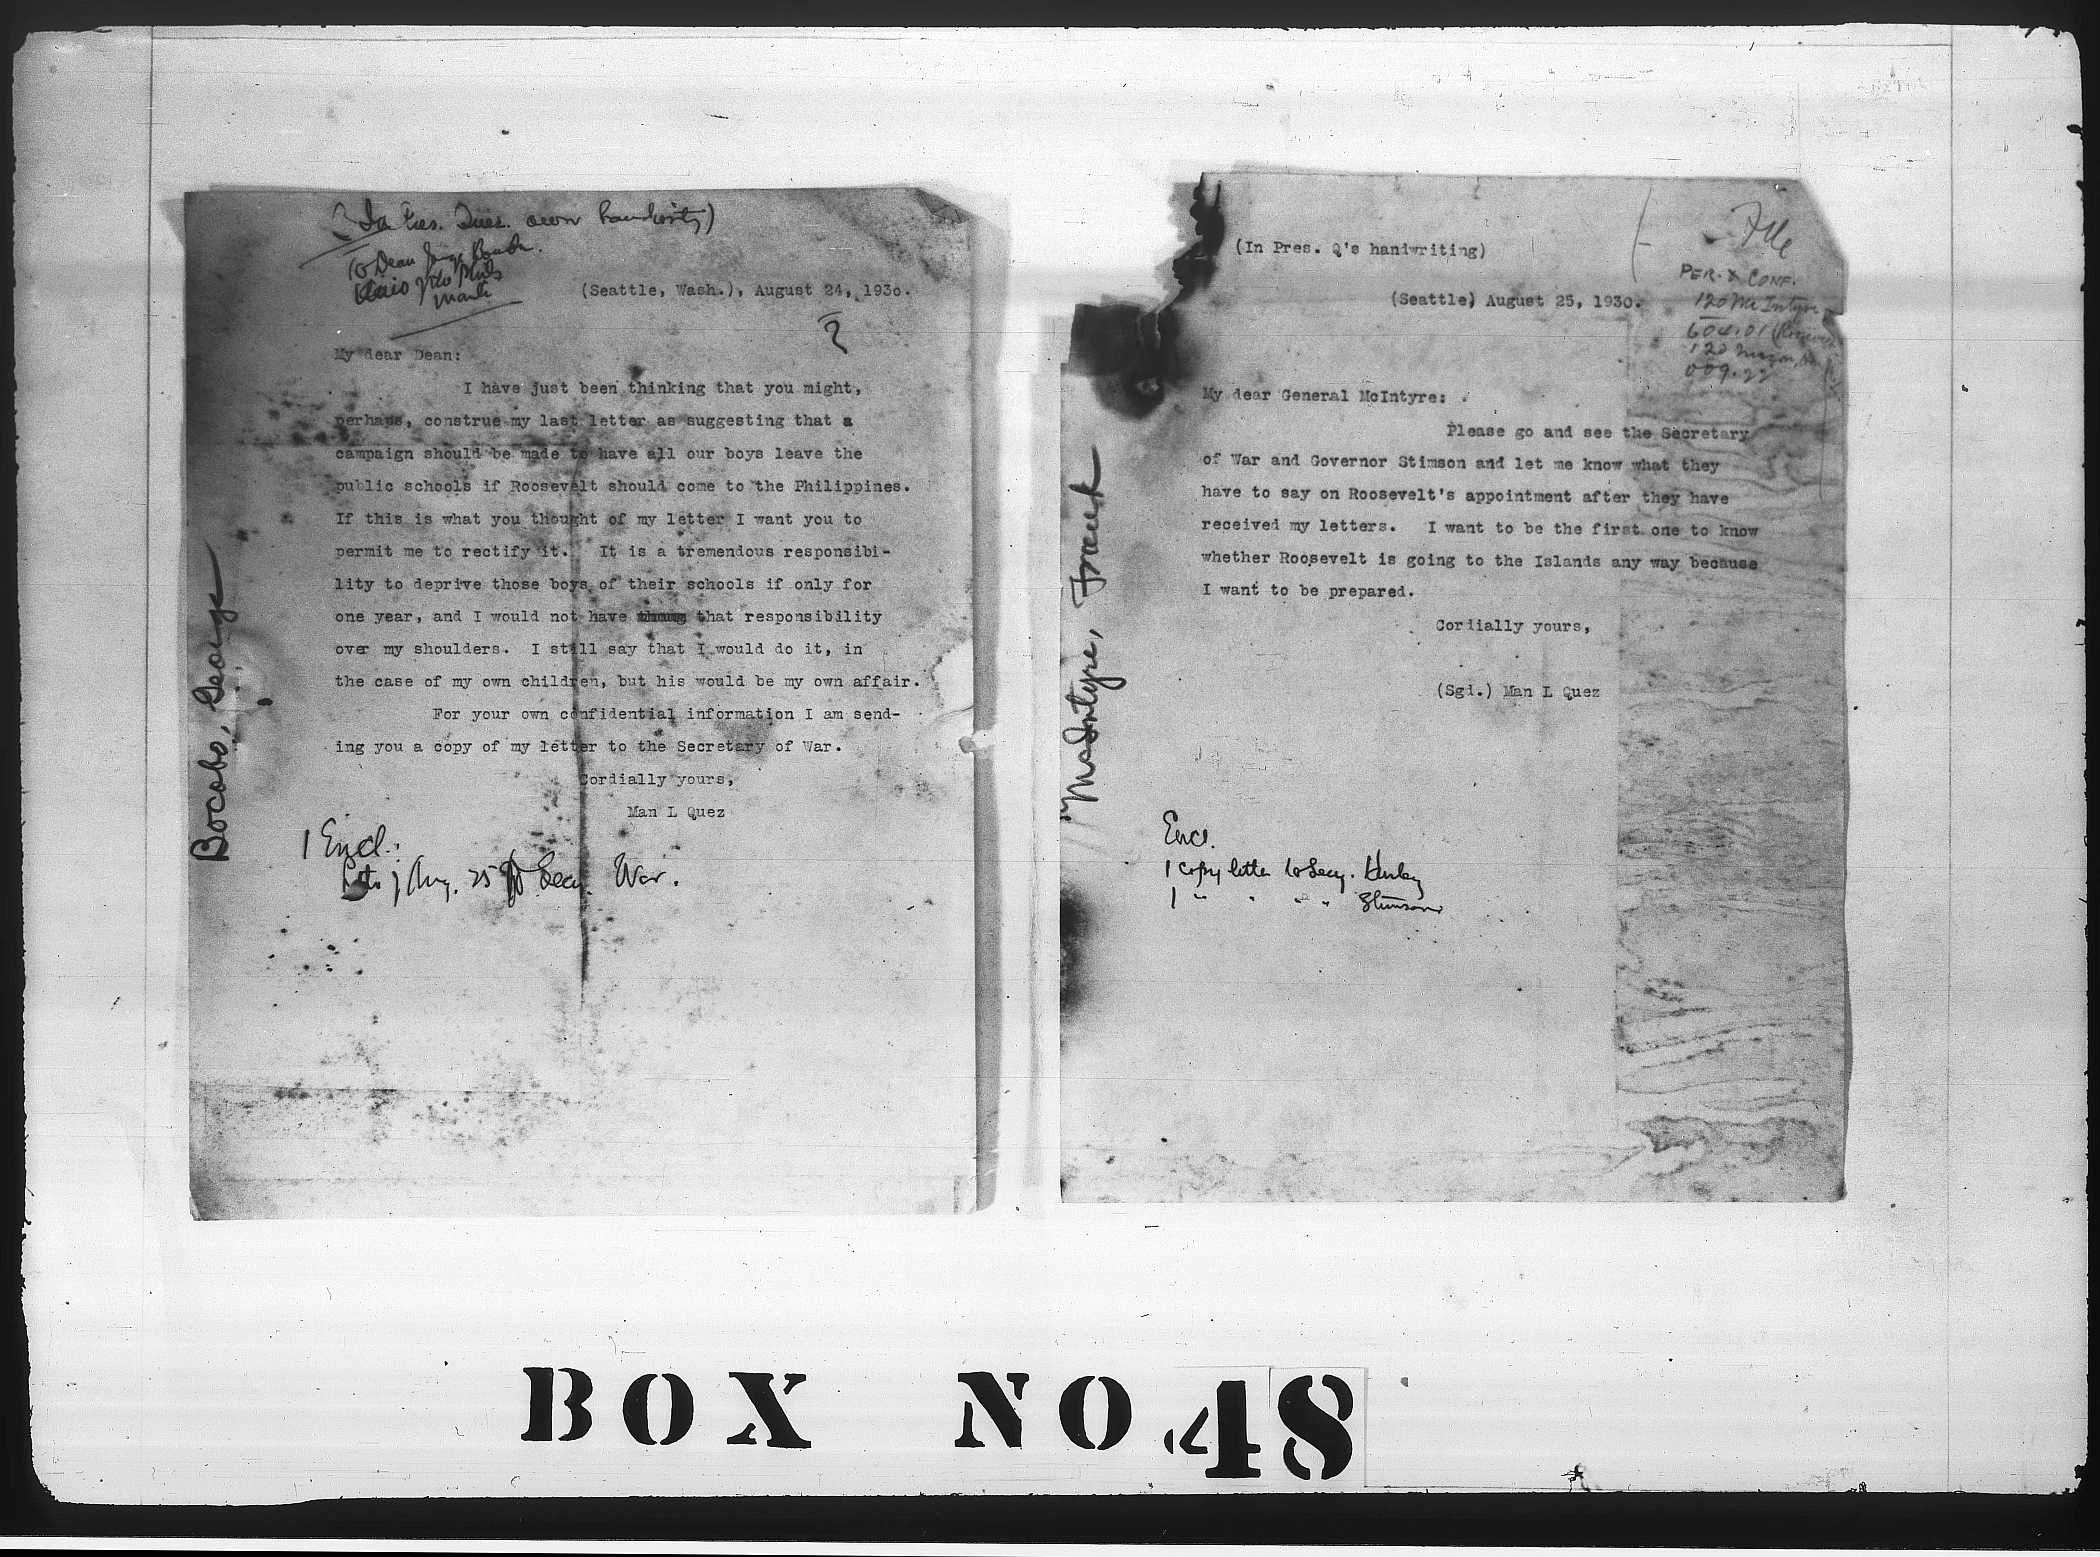 (In Pres. Quez. own handwriting)
To Dean Jorge Bocobo
Univ of the Phils
Manila
(Seattle, Wash.), August 24, 1930.
?
My dear Dean:
I have just been thinking that you might,
perhaps, construe my last letter as suggesting that a
campaign should be made to have all our boys leave the
public schools if Roosevelt should come to the Philippines.
If this is what you thought of my letter I want you to
permit me to rectify it. It is a tremendous responsibi-
lity to deprive those boys of their schools if only for
one year, and I would not have that responsibility
over my shoulders. I still say that I would do it, in
the case of my own children, but his would be my own affair.
For your own confidential information I am send-
ing you a copy of my letter to the Secretary of War.
Cordially yours,
Man L Quez
1 Encl.:
Aug. 25 to Secy. War.
Bocobo, George
File
(In Pres. Q's handwriting)
PER. & CONF.
(Seattle) August 25, 1930.
120 McIntyre
604.01 (Roosevelt
120
009.22
My dear General McIntyre:
Please go and see the Secretary
of War and Governor Stimson and let me know what they
have to say on Roosevelt's appointment after they have
received my letters. I want to be the first one to know
whether Roosevelt is going to the Islands any way because
I want to be prepared.
Cordially yours,
(Sgd.) Man L Quez
Encl.
1 copy letter to Secy. Hurley
1 " " " " Stimson
McIntyre, Frank
BOX NO. 48